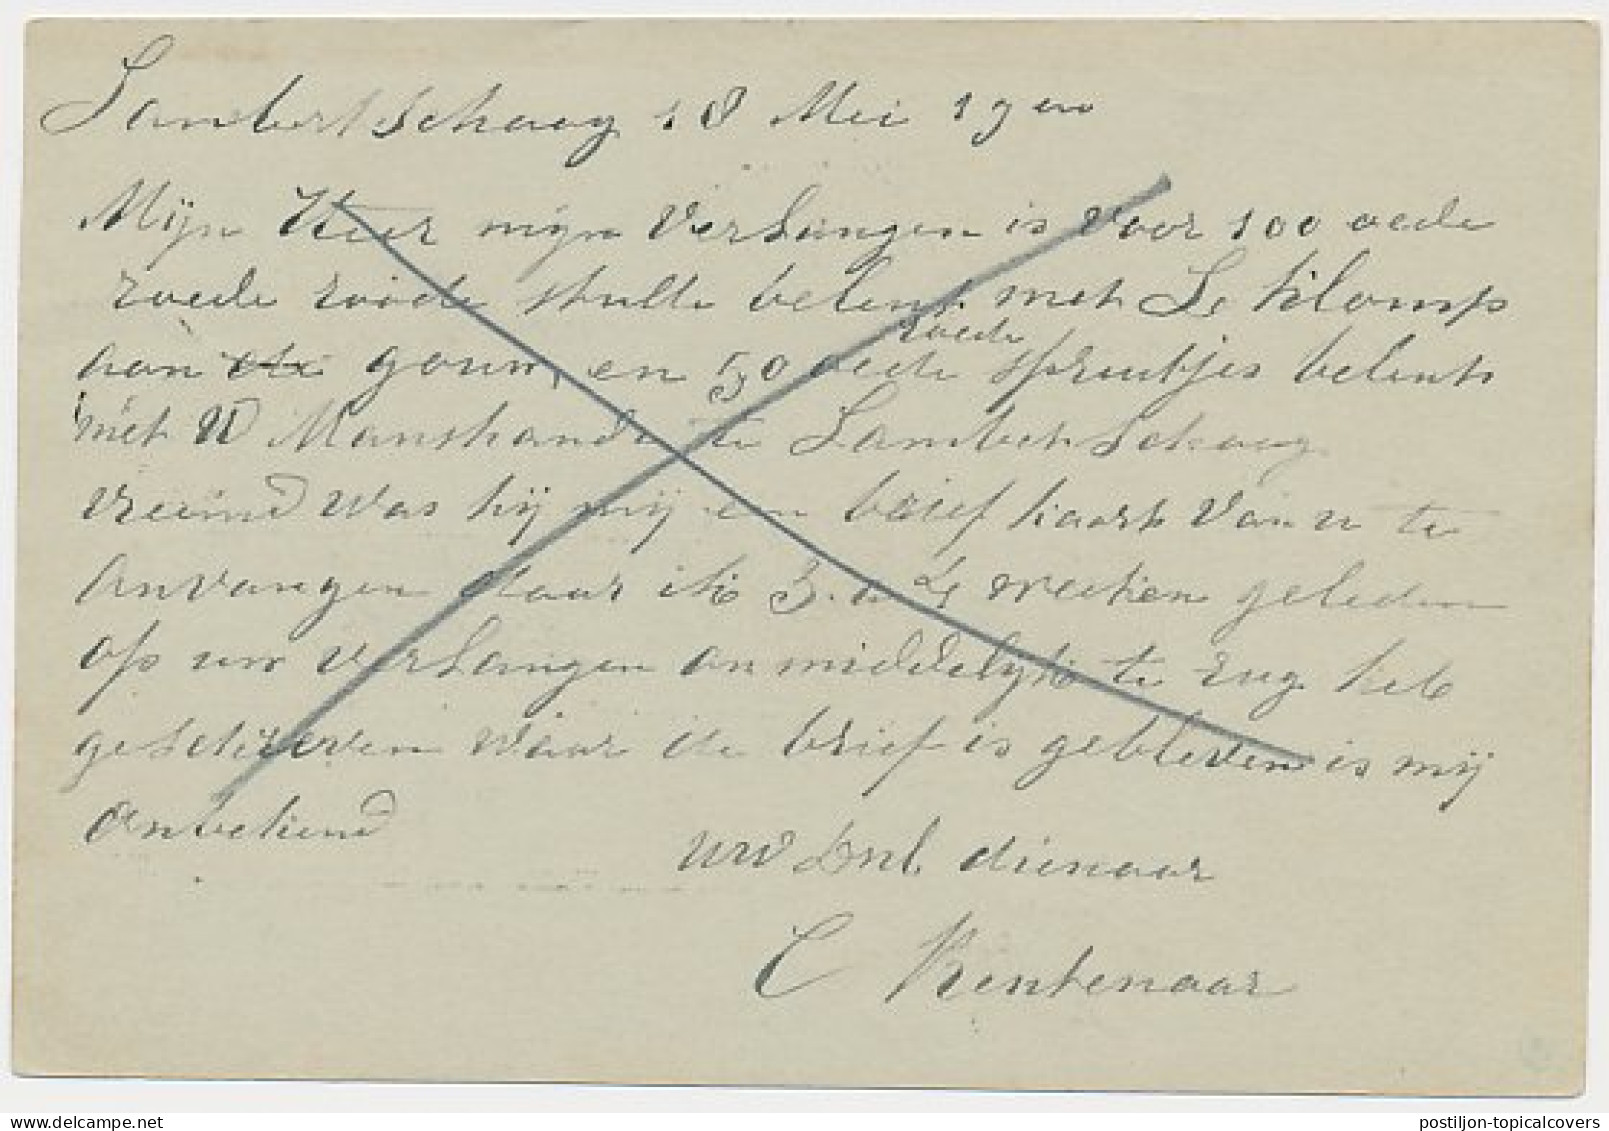 Lambertschaag 18 Mei 19
Mijn Heer mijn Verlangen is Voor 100 oede
roede roode belent met S. Klomp
aan gouw, en 50 oede roede belent
met W Manshande te Lambertschaag
vreemd was hij mij een brief kaart van u te
anvangen daar ik 3 a 4 weeken geleden
op uw verlangen onmiddelijk te rug heb
geschreeven waar de brief is gebleven is mij
onbekend
uw dienaar
C Kentenaar
postiljon-topicalcovers